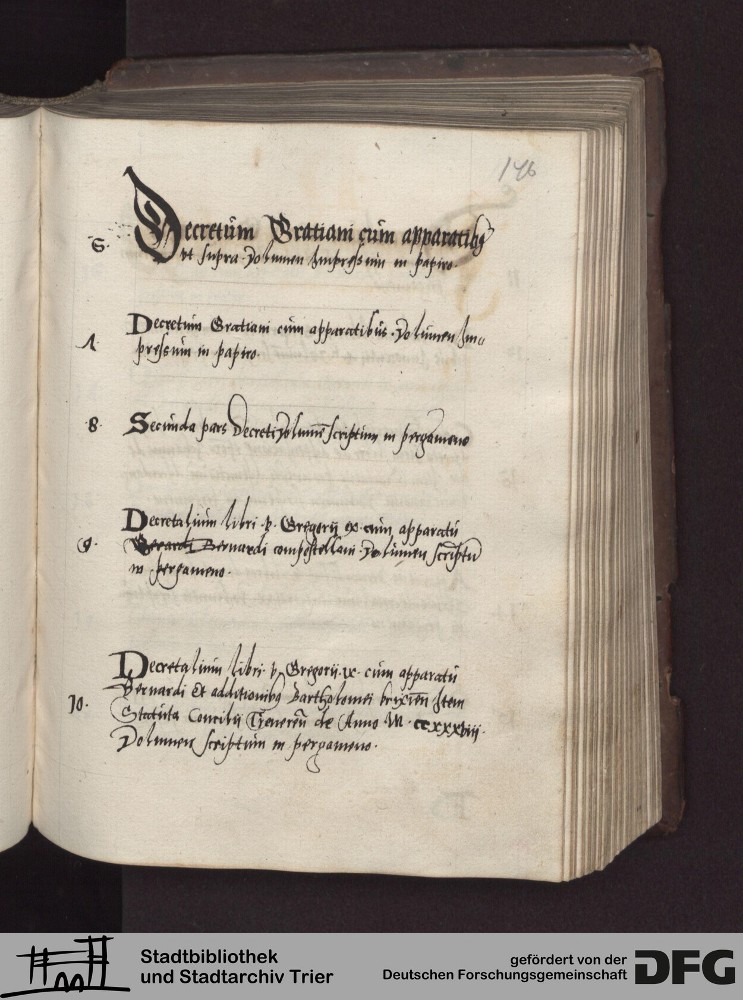 146
6. Decretum Gratiani cum apparatibꝫ
vt supra Volumen Impressum in papiro.
Decretum Gratiani cum apparatibus. Volumen Im
pressum in papiro.
8. Secunda pars Decreti Volumē scriptum in pergameno
Decretalium libri v. Gregorij ix cum apparatu
9. Bernardi compostellani Volumen scriptū
in pergameno.
Decretalium libri v Gregorij. ix. cum apparatu
Bernardi Et additionibꝫ Bartholomei brixieñ Item
10. Statuta Concilij Treuereñ de Anno M. ccxxxviij.
Volumen scriptum in pergameno.
Stadtbibliothek
und Stadtarchiv Trier
gefördert von der
Deutschen Forschungsgemeinschaft
DFG